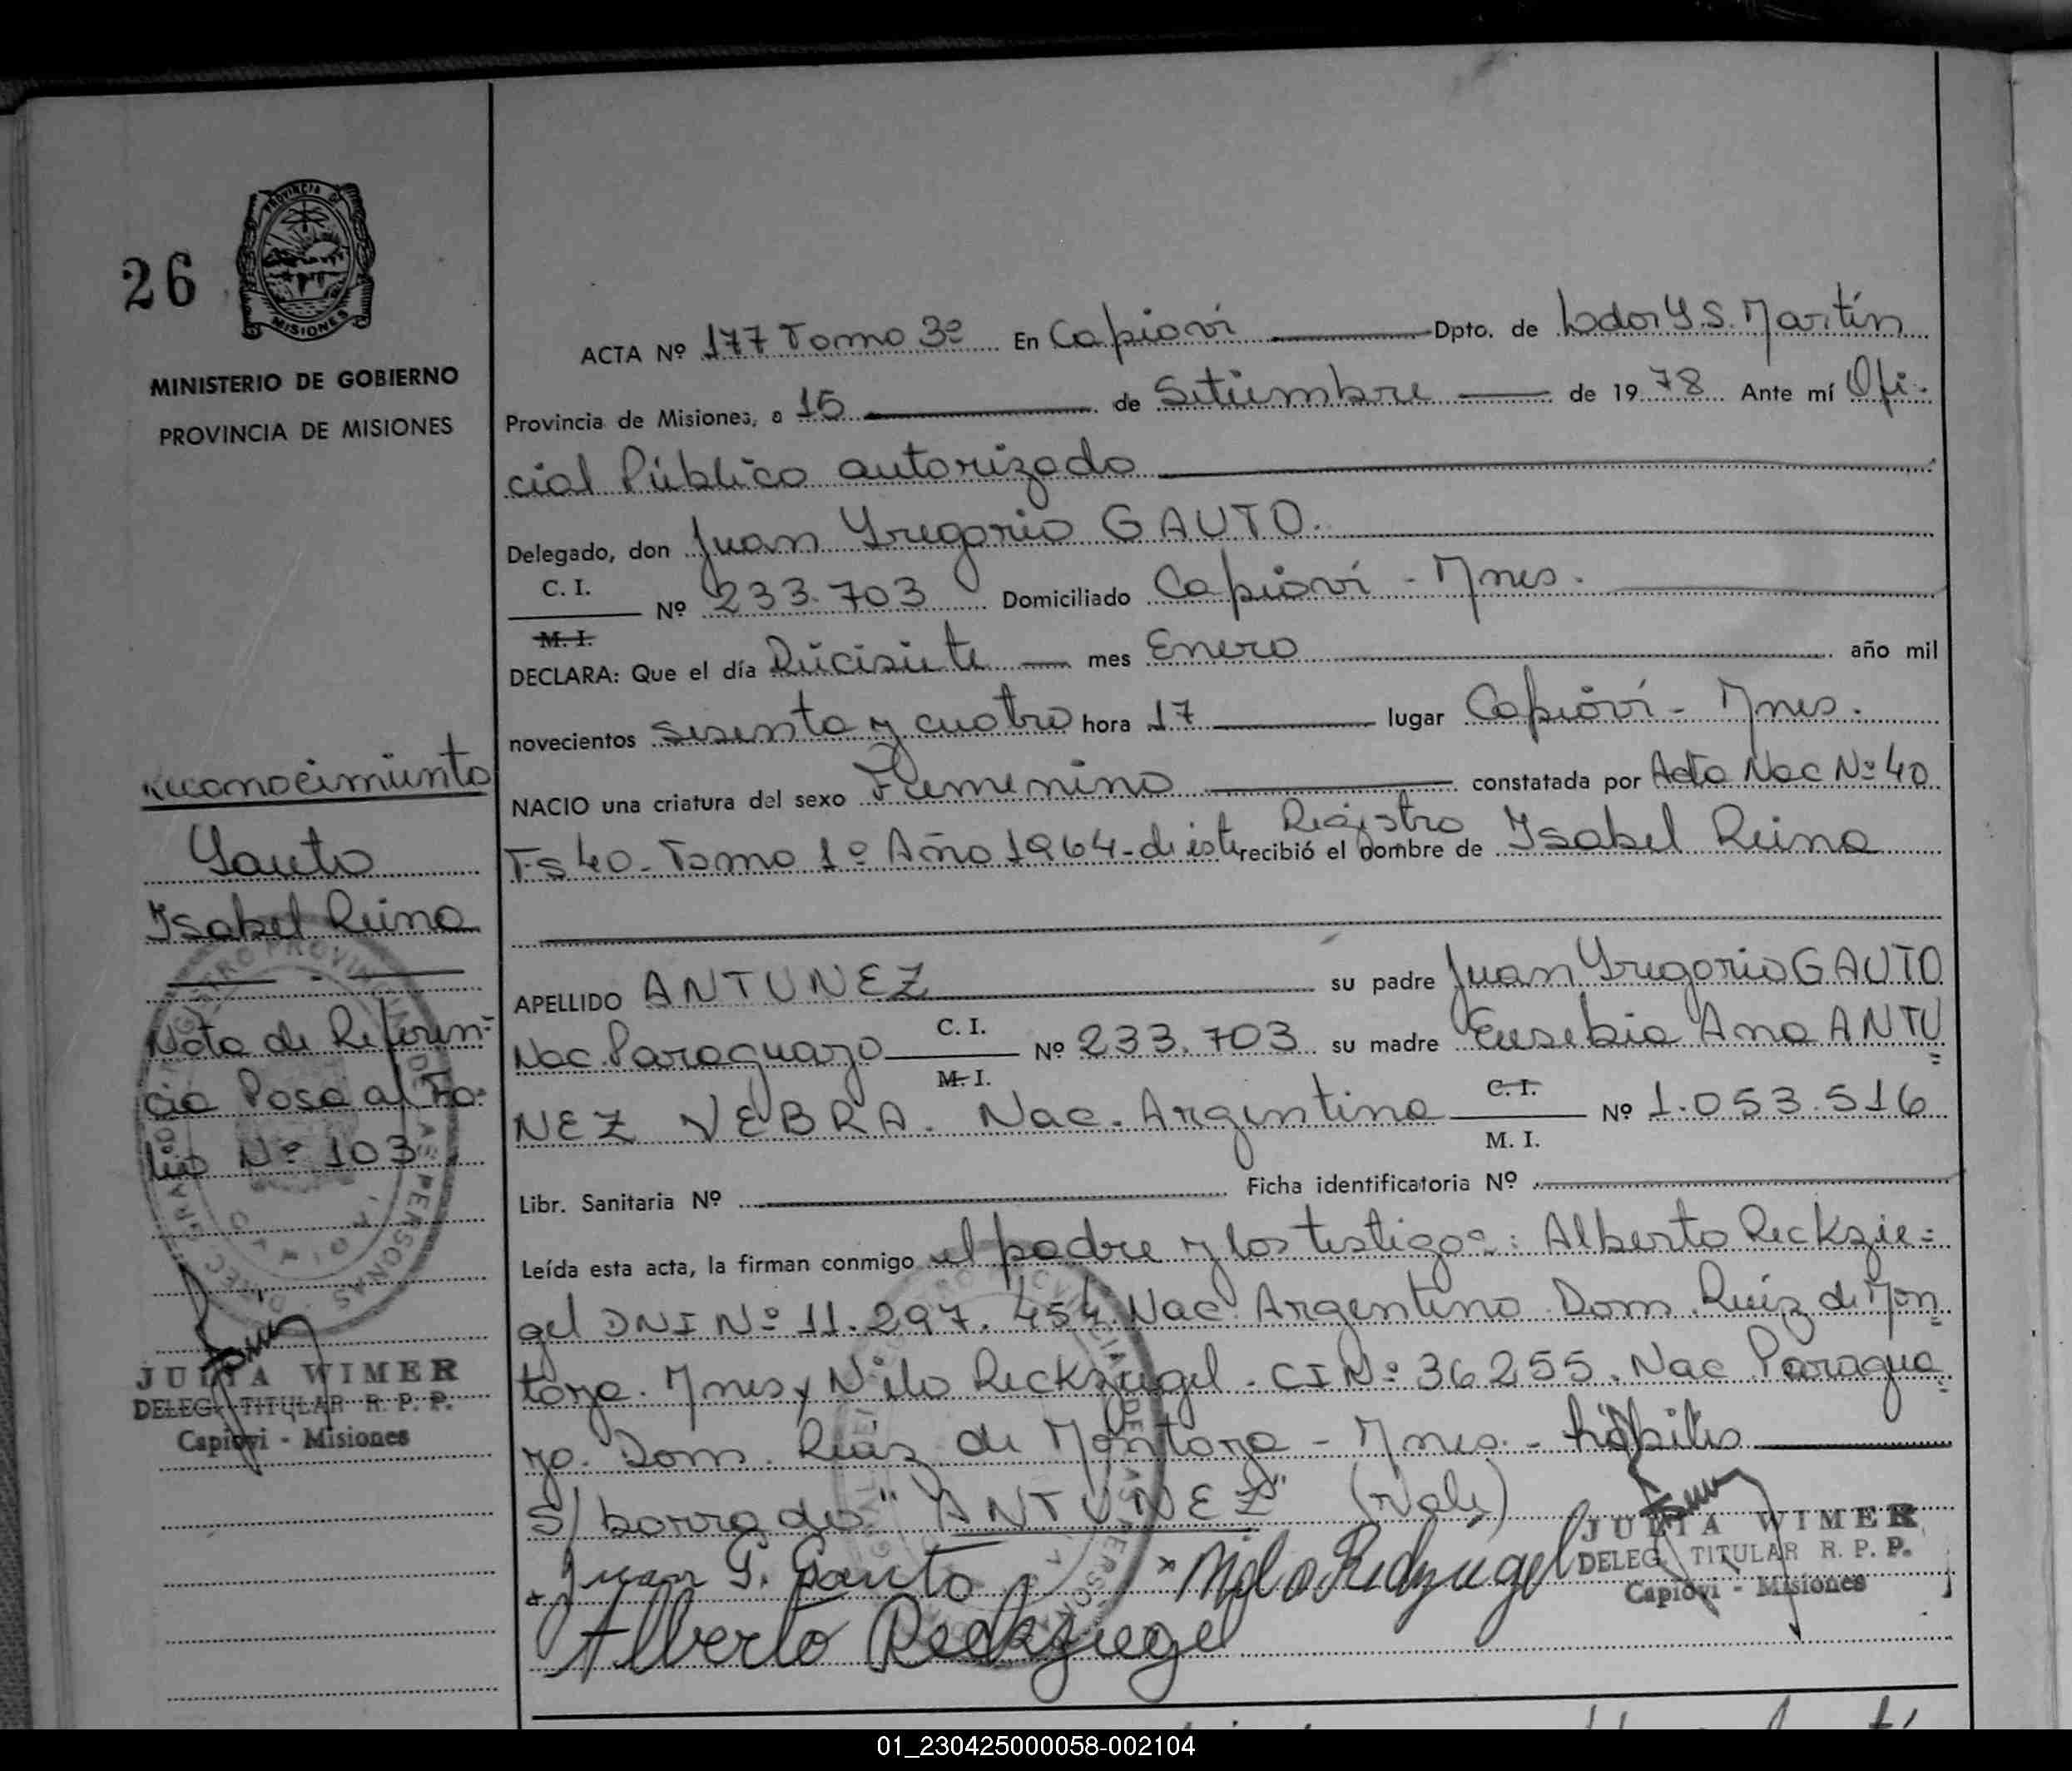 26
PROVINCIA DE
MISIONES
MINISTERIO DE GOBIERNO
PROVINCIA DE MISIONES
Reconocimiento
Gauto
Isabel Reina
Nota de Referen=
cia Pasa al Fo=
lio Nº 103
JULIA WIMER
DELEG. TITULAR R. P. P.
Capiovi - Misiones
ACTA Nº 177 Tomo 3º En Capioví Dpto. de Ldor G. S. Martín
Provincia de Misiones, a 15 de Setiembre de 1978 Ante mí Ofi-
cial Público autorizado
Delegado, don Juan Gregorio GAUTO.
C. I.
Nº 233.703 Domiciliado Capioví - Mnes.
M. I.
DECLARA: Que el día Diecisiete mes Enero año mil
novecientos sesenta y cuatro hora 17 lugar Capioví - Mnes.
NACIO una criatura del sexo Femenino constatada por Acta Nac Nº 40
Registro
Fs 40 - Tomo 1º Año 1964 - de este recibió el nombre de Isabel Reina
APELLIDO ANTUNEZ su padre Juan Gregorio GAUTO
Nac. Paraguayo C. I. Nº 233.703 su madre Eusebia Ana ANTU
M. I.
=
C. I.
NEZ VEBRA. Nac. Argentina Nº 1.053.516
M. I.
Libr. Sanitaria Nº Ficha identificatoria Nº
Leída esta acta, la firman conmigo el padre y los testigos: Alberto Reckzie=
gel DNI Nº 11.297.454 Nac. Argentino Dom. Ruiz de Mon=
toya. Mnes y Nilo Reckziegel - CI Nº 36255. Nac Paragua=
yo. Dom. Ruiz de Montoya - Mnes. - hábiles
S/ borrado: "ANTUNEZ" (Vale)
Juan G. Gauto
Nilo Reckziegel
Alberto Reckziegel
JULIA WIMER
DELEG. TITULAR R. P. P.
Capiovi - Misiones
01_230425000058-002104